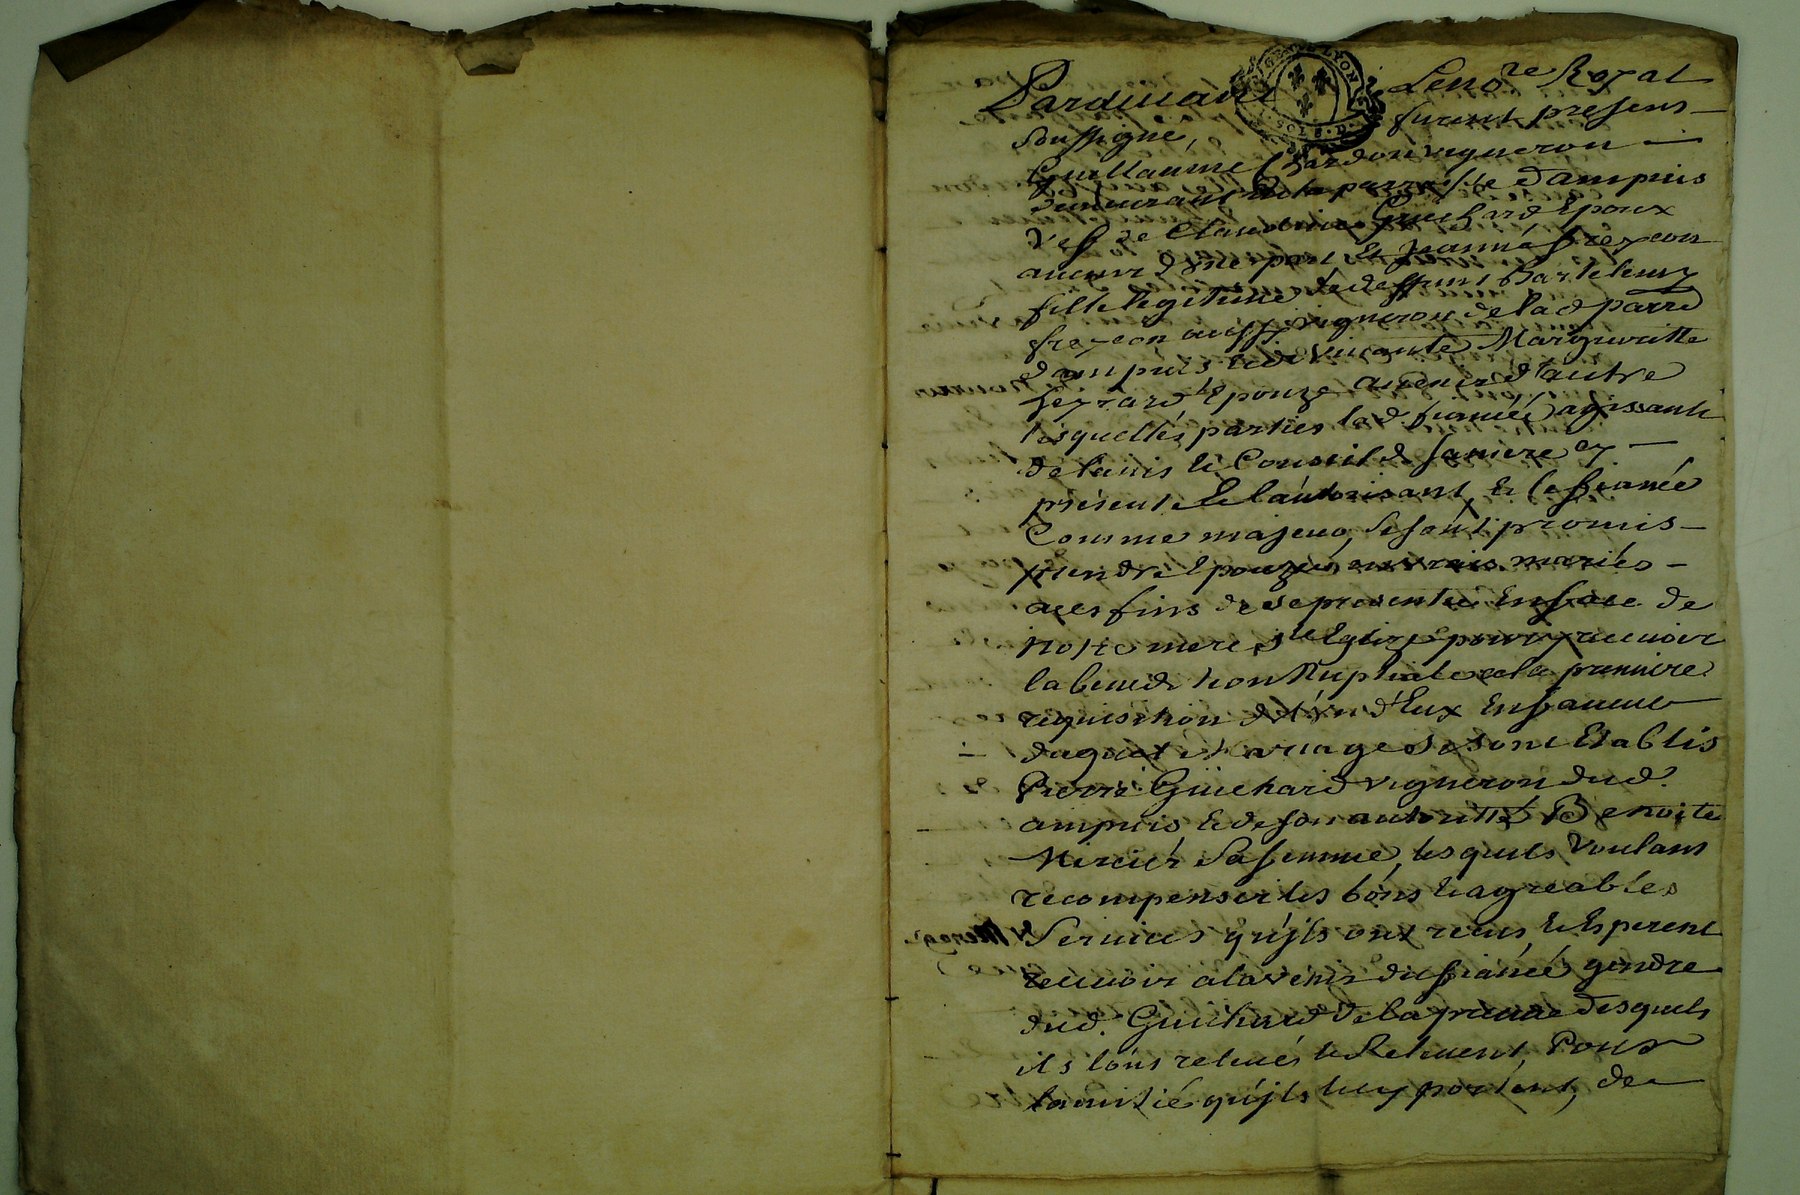 Pardevant Le no.re Royal
Soussigné, furent presens
Guillaume Chardon vigneron
demeurant en la parroisse d'ampuis
veff de Claudine Guichard Epoux
avenir d'une part Et Jeanne freycon
fille legitime de deffunt Barteleny
freycon aussy vigneron de lad parre
d'ampuis Et de vivante Margueritte
Epouze avenir d'autre
lesquelles parties lad fiancée agissante
de lavis Et Conseil de sa mere cy
presente Et l'autorisant, Et le fiancé
Comme majeur, se sont promis
prendre Epouzes en vrais mariés
aces fins de se presenter En face de
notre mere ste Eglize pour y recevoir
la benediction Nuptiale a la premiere
requisition de l'un d'Eux En faveur
duquel Mariage se sont Etablis
Pierre Guichard vigneron dud.
ampuis Et de son autoritté Benoite
Mercier Sa femme, lesquels Voulans
recompenser les bons Et agreables
Services qu'jls ont recus, Et Esperent
recevoir alavenir du fiancé gendre
dud. Guichard de la preuve desquels
ils l'ont relevés Et Relevent, Pour
lamitié qu'jls luy portent, de